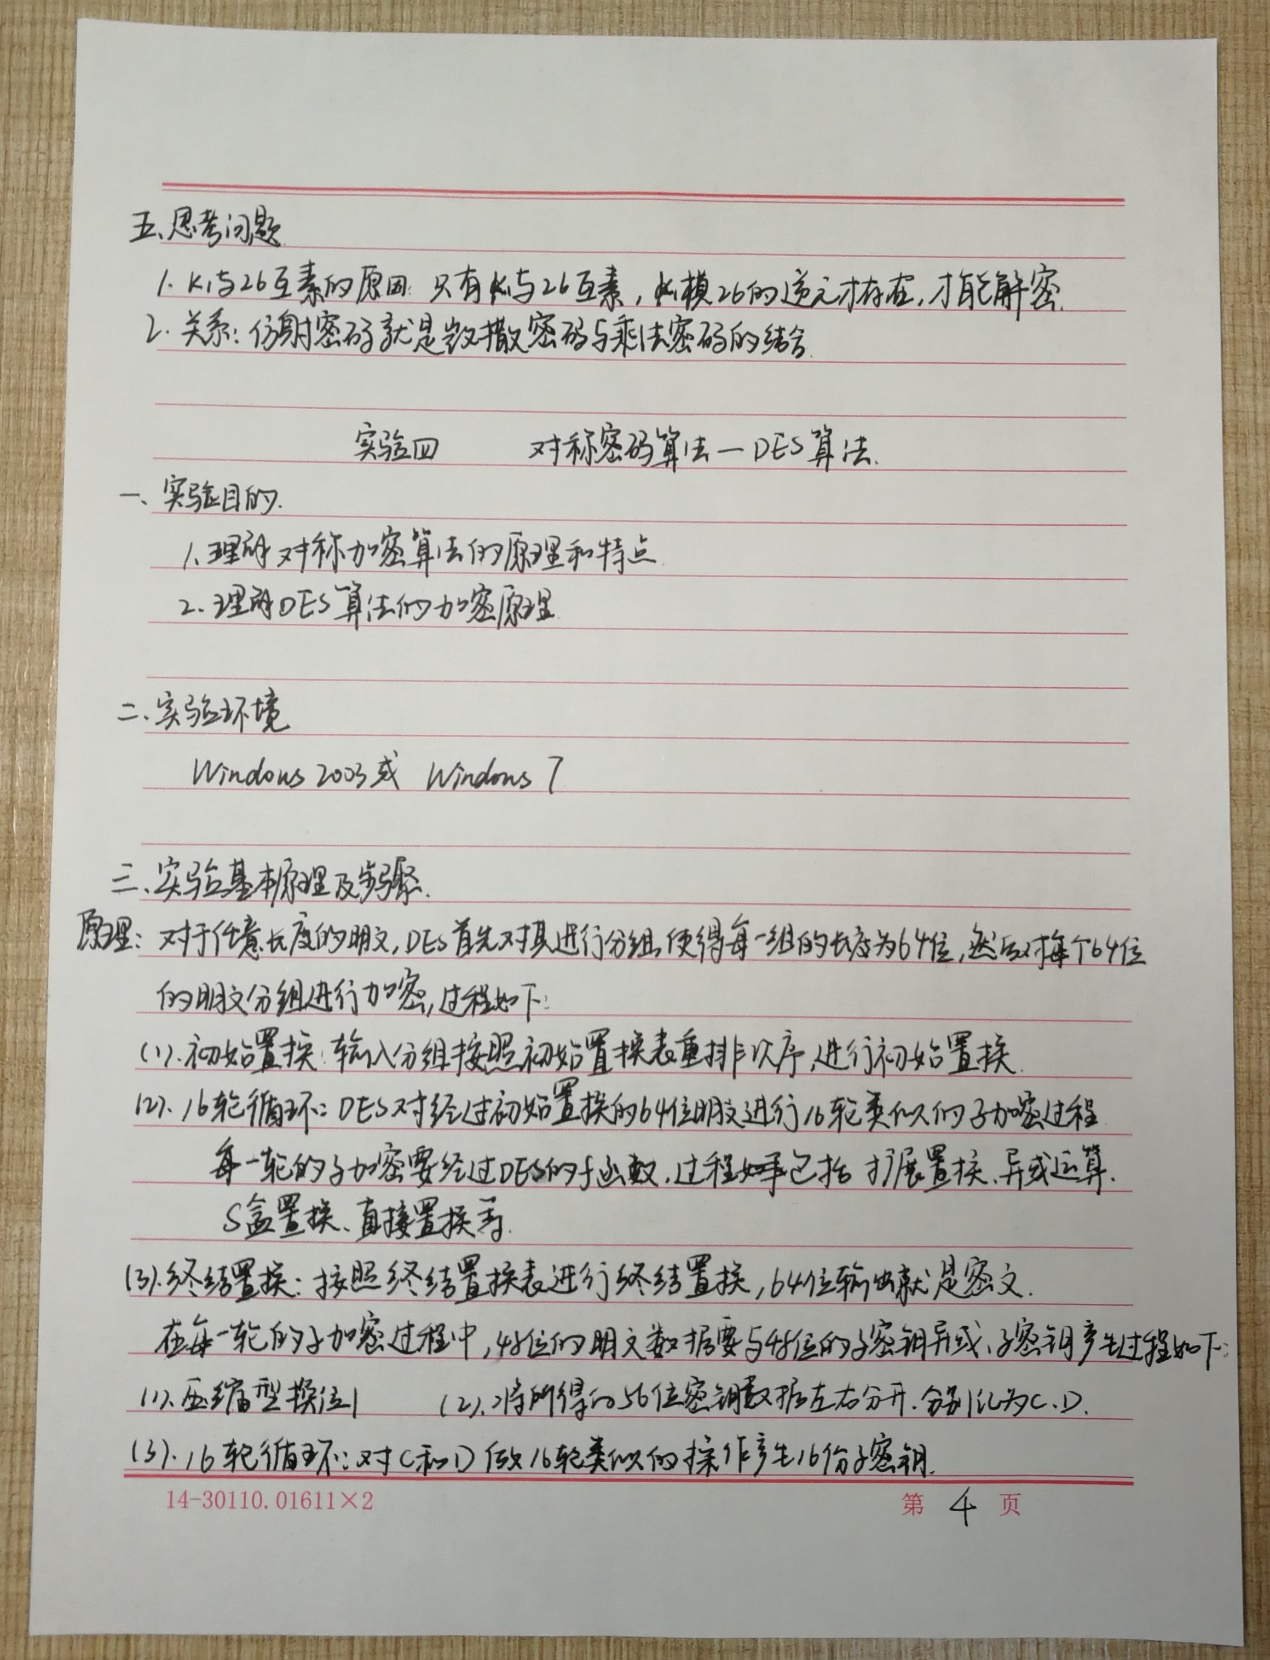 五、思考问题
1. K1与26互素的原因: 只有K1与26互素, K1模26的逆元才存在,才能解密.
2. 关系: 仿射密码就是数撒密码与乘法密码的结合.
实验四 对称密码算法—DES算法.
一、实验目的.
1. 理解对称加密算法的原理和特点.
2. 理解DES算法的加密原理.
二、实验环境
Windows 2003或 Windows 7
三、实验基本原理及步骤.
原理: 对于任意长度的明文,DES首先对其进行分组,使得每一组的长度为64位,然后对每个64位
的明文分组进行加密,过程如下:
(1).初始置换: 输入分组按照初始置换表重排次序,进行初始置换.
(2).16轮循环: DES对经过初始置换的64位明文进行16轮类似的子加密过程.
每一轮的子加密要经过DES的f函数,过程包括扩展置换、异或运算.
S盒置换、直接置换等.
(3).终结置换: 按照终结置换表进行终结置换,64位输出就是密文.
在每一轮的子加密过程中,48位的明文数据要与48位的子密钥异或,子密钥产生过程如下:
(1).压缩型换位1 (2).将所得的56位密钥数据左右分开.分别记为C、D.
(3).16轮循环: 对C和D做16轮类似的操作产生16份子密钥.
14-30110.01611×2 第 4 页